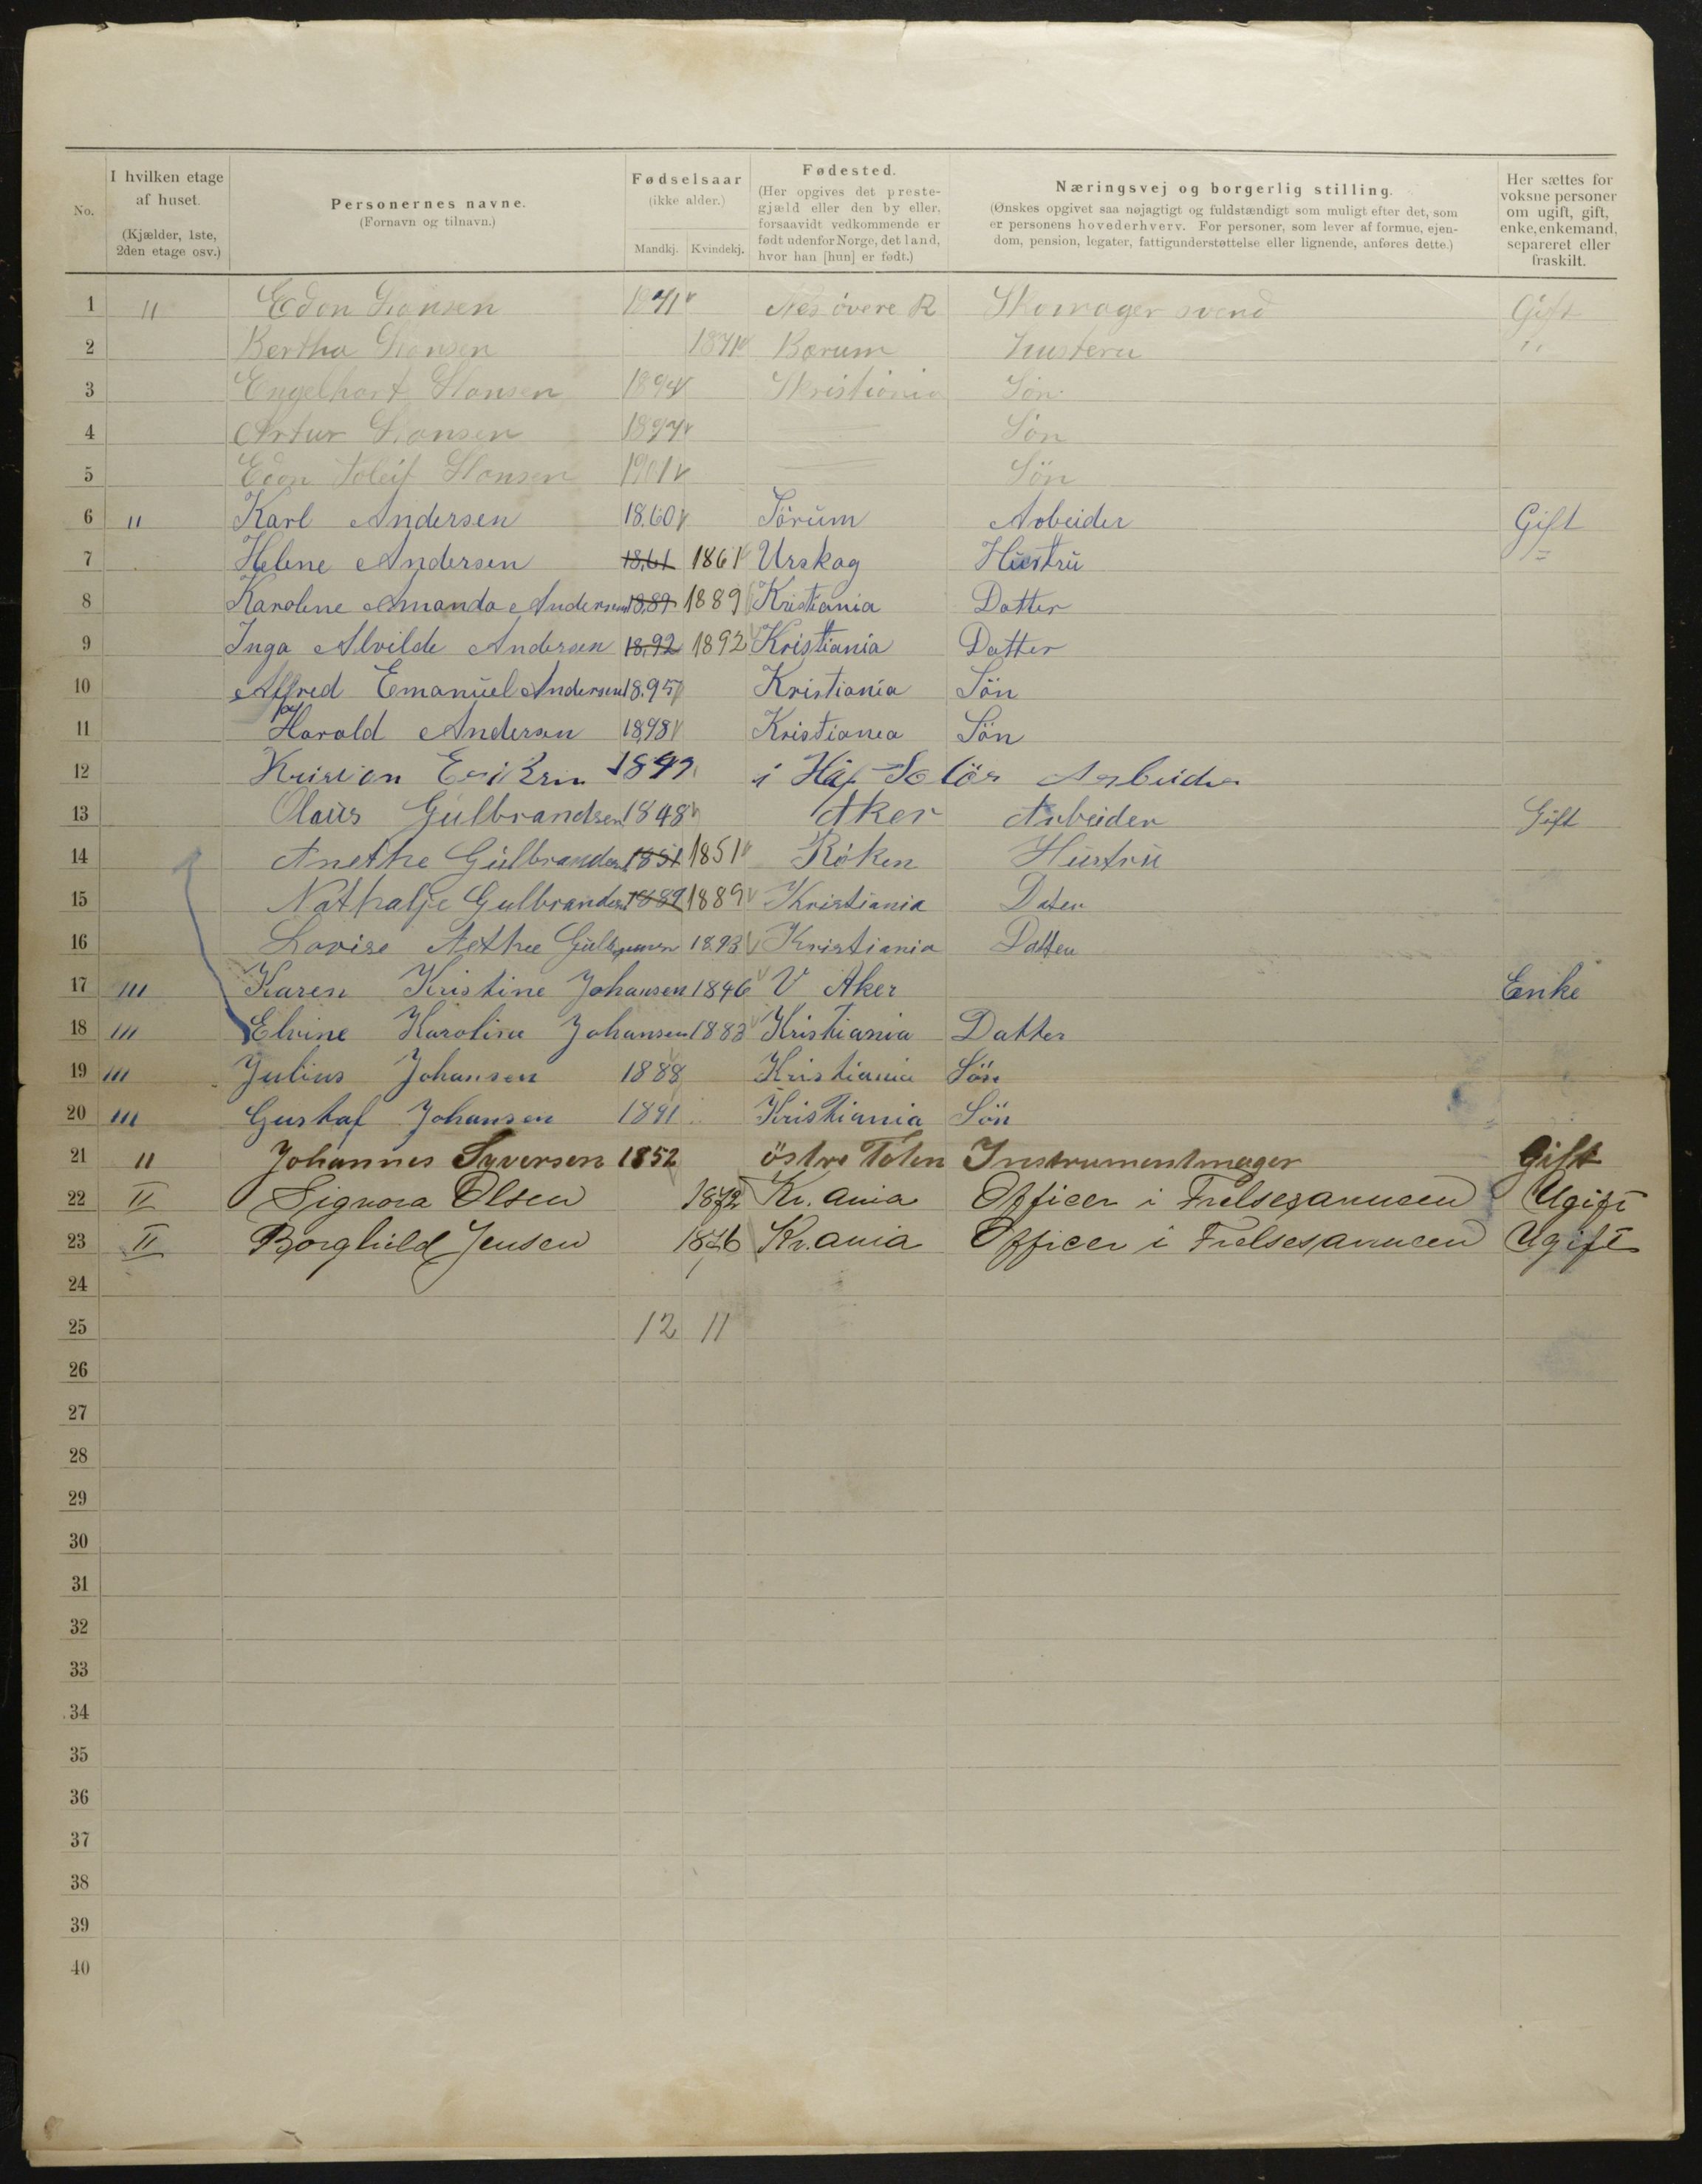 No. | I hvilken etage af huset. (Kjælder, 1ste, 2den etage osv.) | Personernes navne. (Fornavn og tilnavn.) | Fødselsaar (ikke alder.) Mandkj. Kvindekj. | Fødested. (Her opgives det prestegjæld eller den by eller, forsaavidt vedkommende er født udenfor Norge, det land, hvor han [hun] er født.) | Næringsvej og borgerlig stilling. (Ønskes opgivet saa nøjagtigt og fuldstændigt som muligt efter det, som er personens hovederhverv. For personer, som lever af formue, ejendom, pension, legater, fattigunderstøttelse eller lignende, anføres dette.) | Her sættes for voksne personer om ugift, gift, enke, enkemand, separeret eller fraskilt.
1 " Edon Hansen 1871 Nes övere R Skomager svend Gift
2 Bertha Hansen 1871 Barum husteru "
3 Engelhart Hansen 1894 Kristiania Sön
4 Artur Hansen 1897 — Sön
5 Edon Hansen 1901 — Sön
6 " Karl Andersen 1860 Sörum Arbeider Gift
7 Helene Andersen 1861 1861 Urskog Hustru =
8 Karoline Amanda Andersen 1889 1889 Kristiania Datter
9 Inga Alvilde Andersen 1892 1892 Kristiania Datter
10 Alfred Emanuel Andersen 1895 Kristiania Sön
11 Harald Andersen 1898 Kristiania Sön
12 Kristian Eriksen i Solör Arbeider
13 Olaus Gulbrandsen 1848 Aker Arbeider Gift
14 Anethe Gulbrandsen 1851 1851 Röken Hustru
15 Nathalje Gulbrandsen 1889 1889 Kristiania Dater
16 Lovise 1893 Kristiania Datter
17 III Karen Kristine Johansen 1846 V Aker Enke
18 III Elvine Karoline Johansen 1883 Kristiania Datter
19 III Julius Johansen 1888 Kristiania Sön
20 III Gustaf Johansen 1891 Kristiania Sön
21 II Johannes Syversen 1852 östre Toten Instrumentmager Gift
22 II Signora Olsen 1872 Kr.ania Officer i Frelsesarmeen Ugift
23 II Borghild Jensen 1876 Kr.ania Officer i Frelsesarmeen Ugift
24
25 12 11
26
27
28
29
30
31
32
33
34
35
36
37
38
39
40